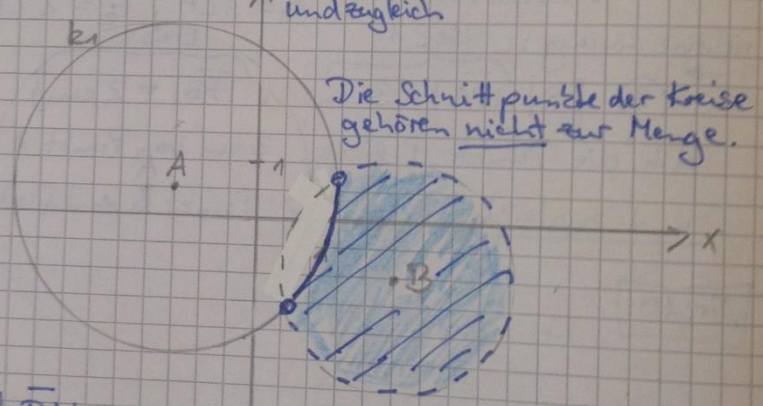 und zugleich
k1
Die Schnittpunkte der Kreise
gehören nicht zur Menge.
1
A
x
B